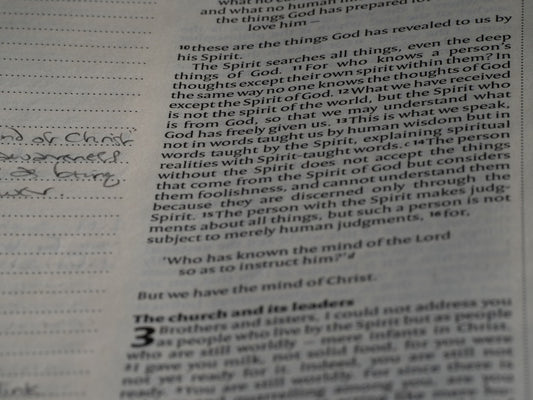 what no
and what no human
the things God has prepared for
love him —
10 these are the things God has revealed to us by
his Spirit.
The Spirit searches all things, even the deep
things of God. 11 For who knows a person's
thoughts except their own spirit within them? In
the same way no one knows the thoughts of God
except the Spirit of God. 12 What we have received
is not the spirit of the world, but the Spirit who
is from God, so that we may understand what
God has freely given us. 13 This is what we speak,
not in words taught us by human wisdom but in
words taught by the Spirit, explaining spiritual
realities with Spirit-taught words. c 14 The person
without the Spirit does not accept the things
that come from the Spirit of God but considers
them foolishness, and cannot understand them
because they are discerned only through the
Spirit. 15 The person with the Spirit makes judg-
ments about all things, but such a person is not
subject to merely human judgments, 16 for,
'Who has known the mind of the Lord
so as to instruct him?' d
But we have the mind of Christ.
The church and its leaders
3 Brothers and sisters, I could not address you
as people who live by the Spirit but as people
who are still worldly – mere infants in Christ.
2 I gave you milk, not solid food, for you were
not yet ready for it. Indeed, you are still not
ready. 3 You are still worldly. For since there is
quarrelling among you, are you
of Christ
awareness
link